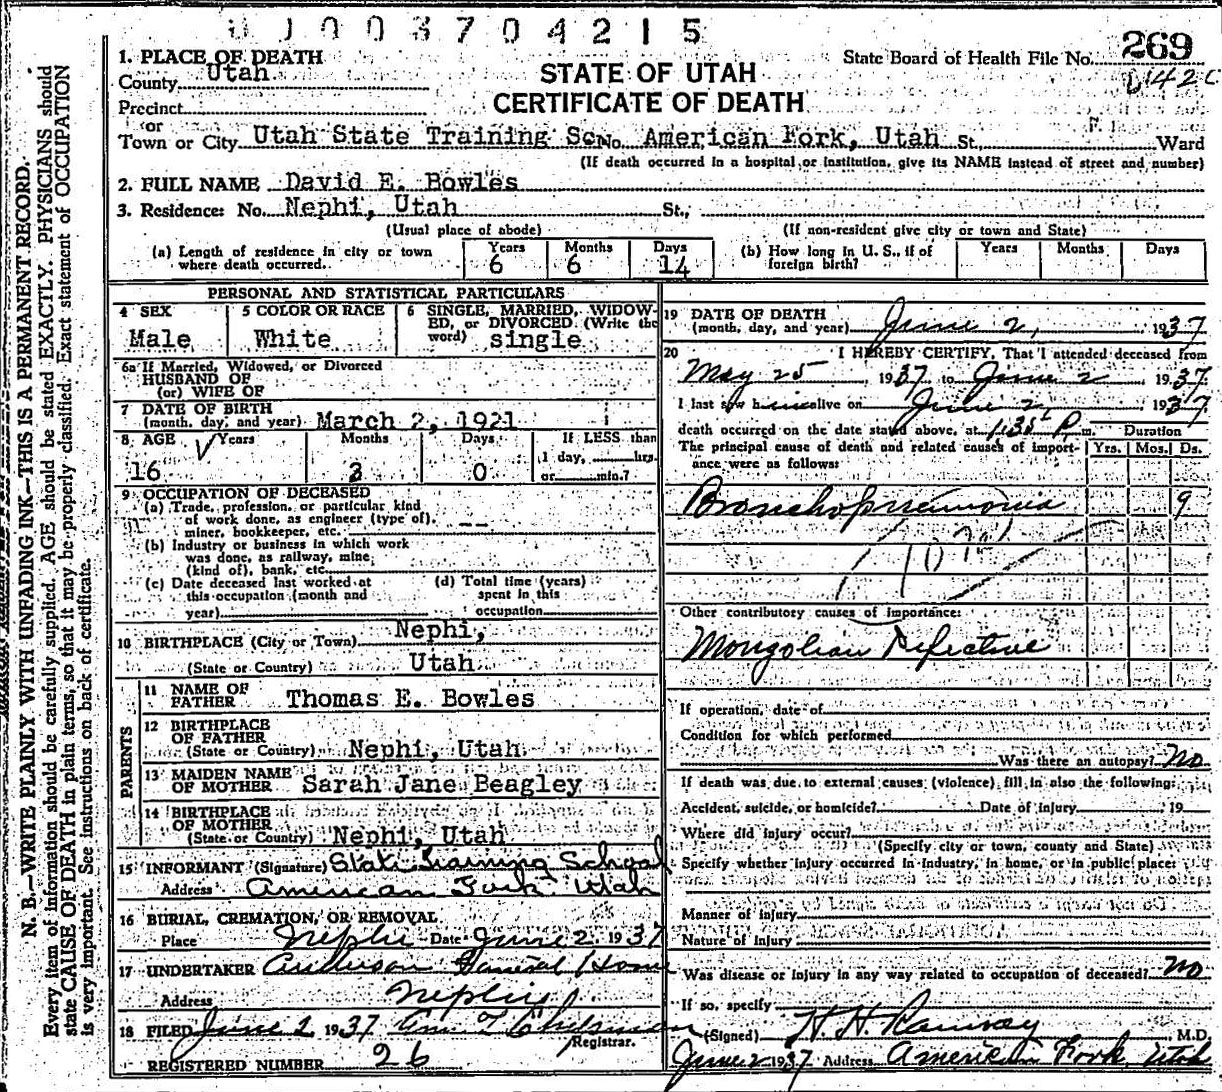 003704215
1. PLACE OF DEATH
State Board of Health File No. 269
County Utah
STATE OF UTAH
CERTIFICATE OF DEATH
Precinct
or
Town or City Utah State Training Sc No. American Fork, Utah St., Ward
(If death occurred in a hospital or institution, give its NAME instead of street and number)
2. FULL NAME David E. Bowles
3. Residence: No. Nephi, Utah St.,
(Usual place of abode) (If non-resident give city or town and State)
(a) Length of residence in city or town where death occurred. Years 6 Months 6 Days 14
(b) How long in U. S., if of foreign birth? Years Months Days
PERSONAL AND STATISTICAL PARTICULARS
4 SEX Male
5 COLOR OR RACE White
6 SINGLE, MARRIED, WIDOWED, or DIVORCED (Write the word) single
6a If Married, Widowed, or Divorced
HUSBAND OF
(or) WIFE OF
7 DATE OF BIRTH
(month, day, and year) March 2, 1921
8 AGE Years Months Days If LESS than
1 day, hrs.
16 3 0 or min.?
9 OCCUPATION OF DECEASED
(a) Trade, profession, or particular kind
of work done, as engineer (type of),
miner, bookkeeper, etc. --
(b) Industry or business in which work
was done, as railway, mine,
(kind of), bank, etc.
(c) Date deceased last worked at
this occupation (month and
year)
(d) Total time (years)
spent in this
occupation
10 BIRTHPLACE (City or Town) Nephi,
(State or Country) Utah
PARENTS
11 NAME OF
FATHER Thomas E. Bowles
12 BIRTHPLACE
OF FATHER
(State or Country) Nephi, Utah
13 MAIDEN NAME
OF MOTHER Sarah Jane Beagley
14 BIRTHPLACE
OF MOTHER
(State or Country) Nephi, Utah
15 INFORMANT (Signature) State Training School
Address American Fork Utah
16 BURIAL, CREMATION, OR REMOVAL
Place Nephi Date June 2 1937
17 UNDERTAKER Anderson Funeral Home
Address Nephi
18 FILED June 2 1937
Registrar.
REGISTERED NUMBER 26
19 DATE OF DEATH
(month, day, and year) June 2, 1937
20 I HEREBY CERTIFY, That I attended deceased from
May 25, 1937 to June 2 1937
I last saw him alive on June 2, 1937
death occurred on the date stated above, at 1:35 P. m. Duration
The principal cause of death and related causes of importance were as follows: Yrs. Mos. Ds.
Bronchopneumonia 9
Other contributory causes of importance:
Mongolian Defective
If operation, date of
Condition for which performed
Was there an autopsy? No
If death was due to external causes (violence) fill in also the following:
Accident, suicide, or homicide? Date of injury 19
Where did injury occur?
(Specify city or town, county and State)
Specify whether injury occurred in industry, in home, or in public place:
Manner of injury
Nature of injury
Was disease or injury in any way related to occupation of deceased? No
If so, specify
(Signed) H. H. Ramsay M.D.
June 2 1937 Address American Fork, Utah
N. B.—WRITE PLAINLY WITH UNFADING INK—THIS IS A PERMANENT RECORD.
Every item of information should be carefully supplied. AGE should be stated EXACTLY. PHYSICIANS should
state CAUSE OF DEATH in plain terms, so that it may be properly classified. Exact statement of OCCUPATION
is very important. See instructions on back of certificate.